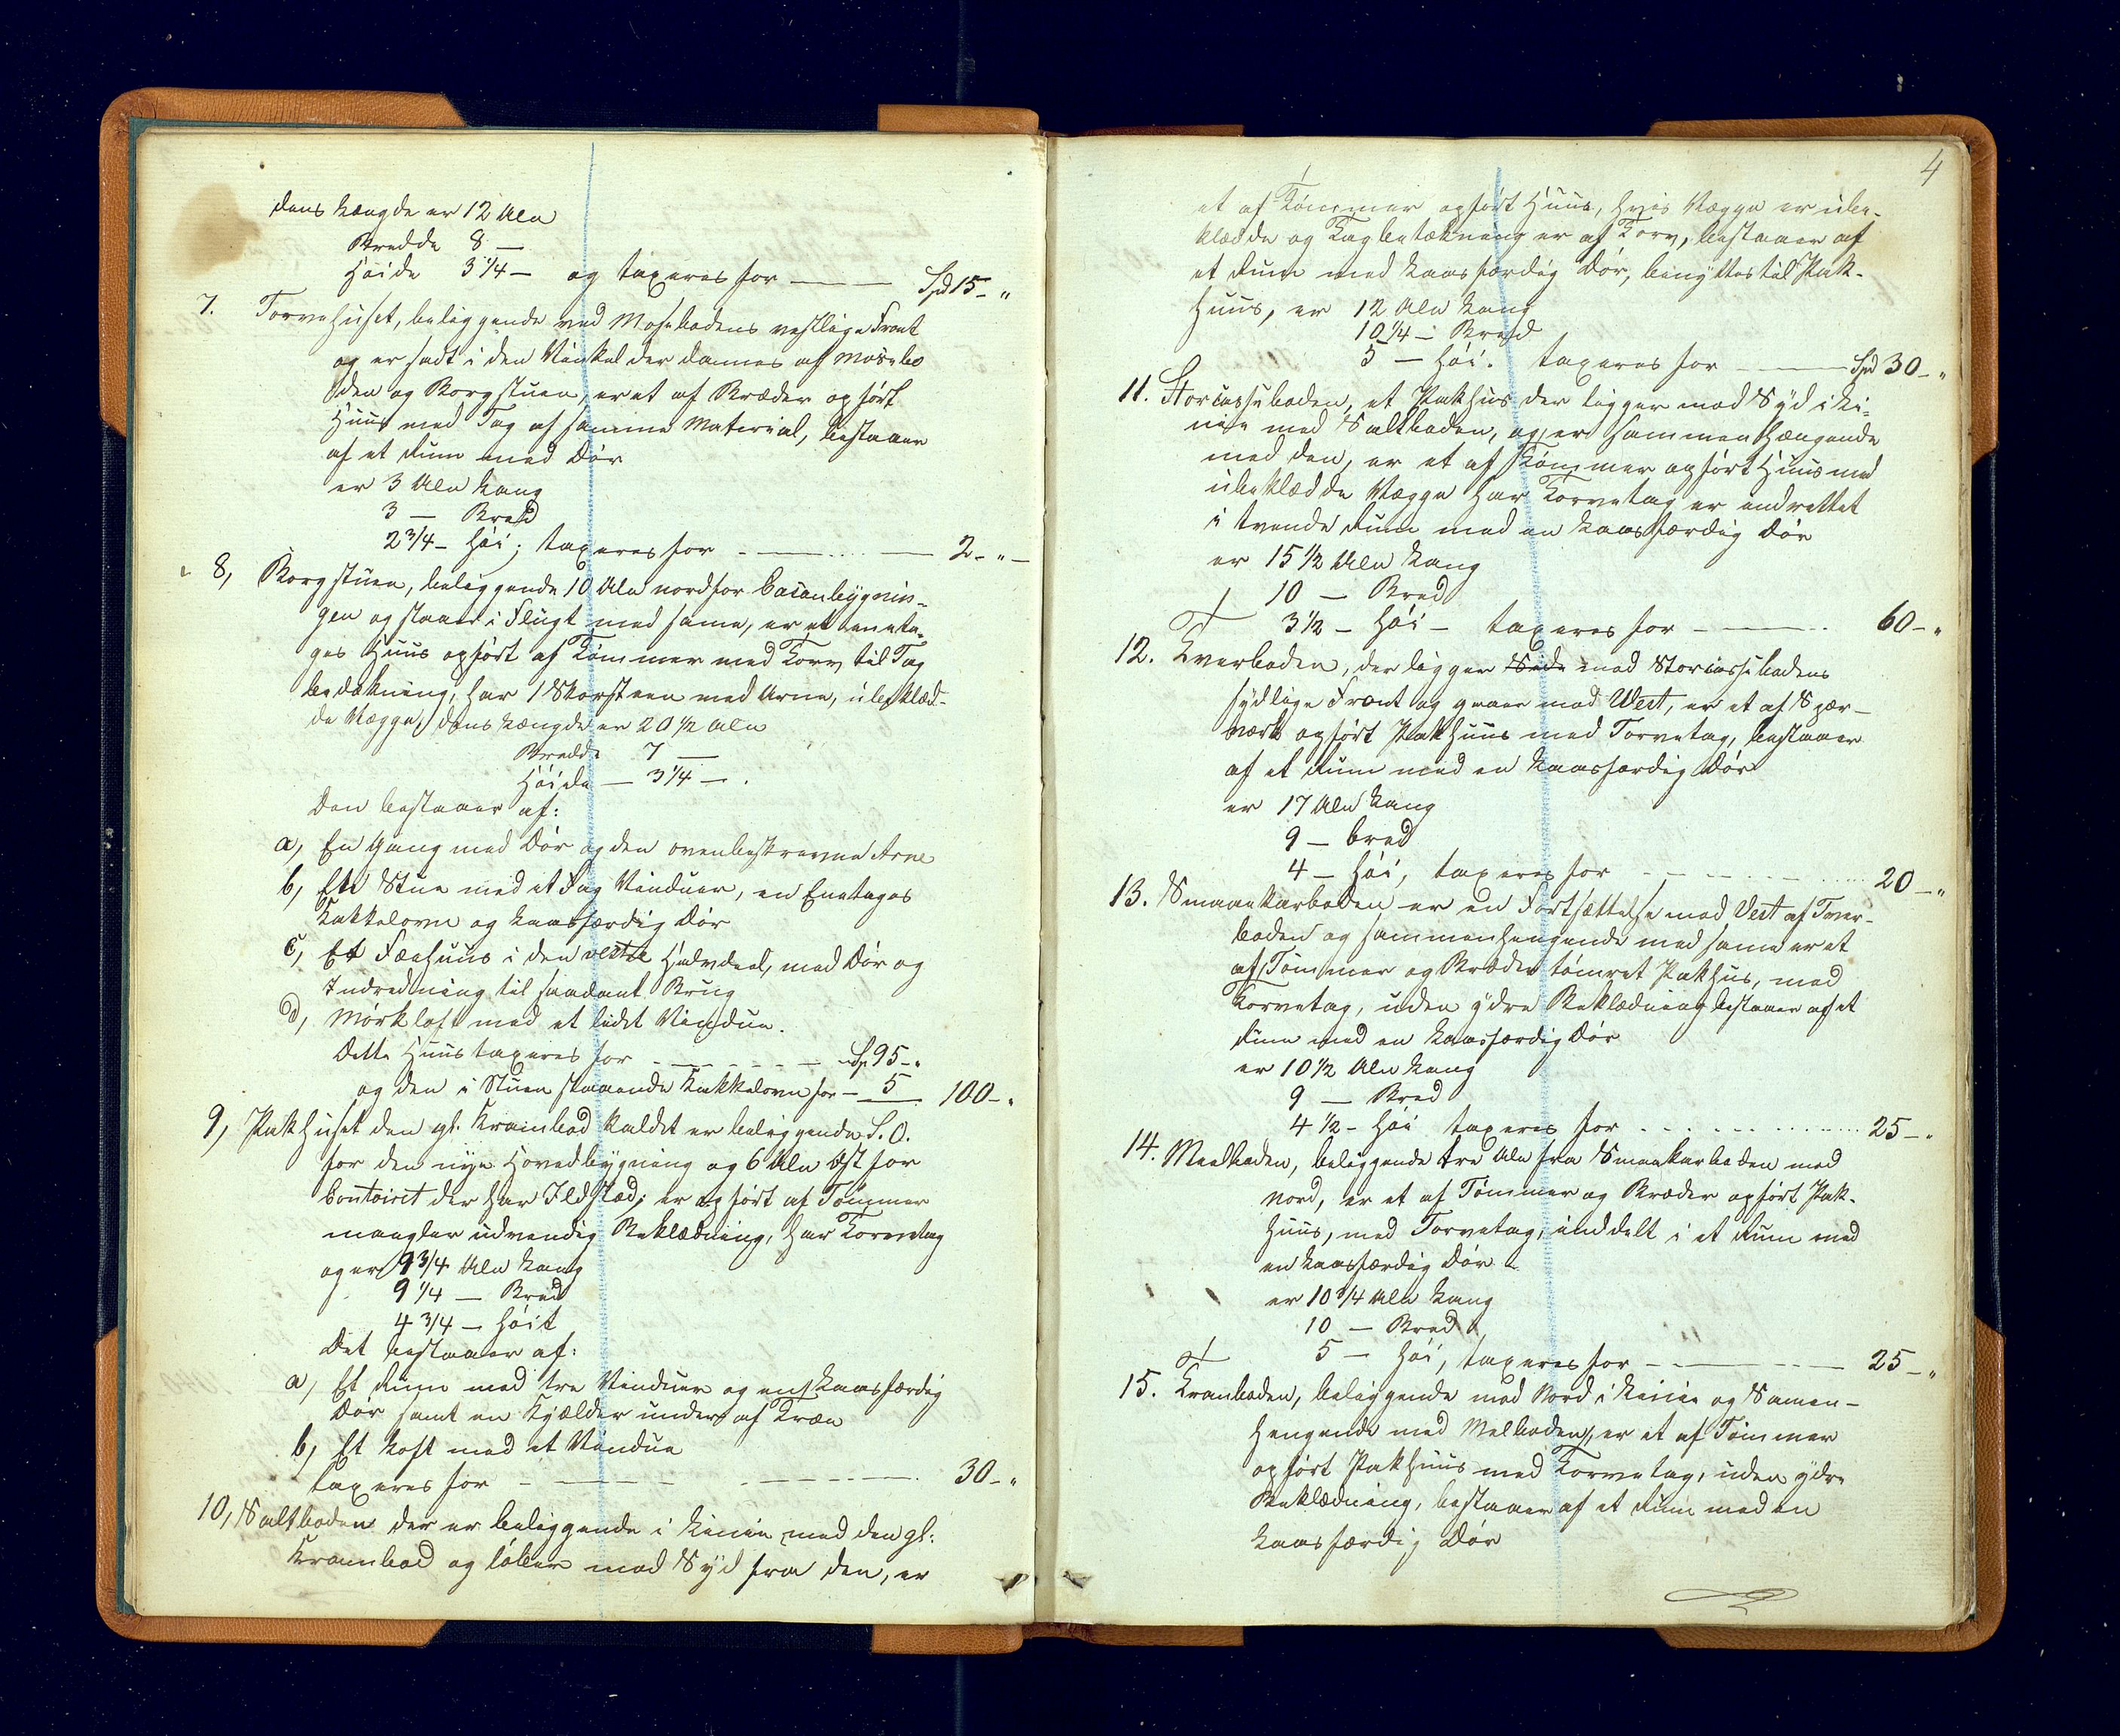 dens Længde er 12 Alen
Bredde 8 —
Høide 3 1/4 — og taxeres for — — Spd 15 – "
7. Torvehuset, beliggende ved Mosebodens vestlige Front
og er sadt i den Vinkel der dannes af Mosebo
den og Borgstuen, er et af Bræder opført
Huus med Tag af samme Material, bestaaer
af et Rum med Dør
er 3 Alen Lang
3 — Bred
2 3/4 – Høi; taxeres for — — 2 – " –
8, Borgstuen, beliggende 10 Alen nordfor Caianbygnin-
gen og staaer i Flugt med samme, er et eneta-
ges Huus opført af Tømmer med Torv til Tag
bedækning, har 1 Skorsteen med Arne, ubeklæd-
de Vægge, dens Længde er 20 1/2 Alen
Bredde 7 —
Høide — 3 1/4 — .
Den bestaaer af:
a, En Gang med Dør og den ovenbeskrevne Arne
b, Ete Stue med et Fag Vinduer, en Enetages
Kakkelovn og Laasfærdig Dør
c, Et Fæehuus i den vestre Halvdeel, med Dør og
Indredning til saadant Brug
d, Mørkloft med et lidet Vindue.
Dette Huus taxeres for — — — Sp. 95 – "
og den i Stuen staaende Kakkelovn for – 5 100 – "
9, Pakhuset den gl. Krambod kaldet er beliggende S. O.
for den nye Hovedbygning og 6 Alen Øst for
Contoiret der har Ildsted, er opført af Tømmer
mangler udvendig Beklædning, har Torvetag
og er 9 3/4 Alen Lang
9 1/4 — Bred
4 3/4 — Høit
Det bestaaer af:
a, Et Rum med tre Vinduer og en Laasfærdig
Dør samt en Kjælder under af Træe
b, Et Loft med et Vindue
taxeres for — — — 30 – "
10, Saltboden der er beliggende i Linie med den gl:
Krambod og løber mod Syd fra den, er
4
et af Tømmer opført Huus, hvis Vægge er ube-
klædde og Tagbetækning er af Torv, bestaaer af
et Rum med Laasfærdig Dør, benyttes til Pak-
huus, er 12 Alen Lang
10 1/4 – Bred
5 — Høi. taxeres for — — Spd 30 – "
11. Storcassseboden, et Pakhus der ligger mod Syd i Li-
nie med Saltboden, og er sammenhængende
med den, er et af Tømmer opført Huus med
ubeklædde Vægge har Torvetag er indrettet
i tvende Rum med en Laasfærdig Dør
er 15 1/2 Alen Lang
10 — Bred
3 1/2 – Høi – taxeres for — — 60 – "
12. Tverboden, der ligger Side mod Storcassebodens
sydlige Front og gaaer mod West, er et af Spær-
værk opført Pakhuus med Torvetag, bestaaer
af et Rum med en Laasfærdig Dør
er 17 Alen Lang
9 — bred
4 – Høi, taxeres for — — 20 – "
13. Smaaekarboden er en Fortsættelse mod Vest af Tver-
boden og sammenhengende med same er et
af Tømmer og Bræder tømret Pakhus, med
Torvetag, uden ydre Beklædning bestaaer af et
Rum med en Laasfærdig Dør
er 10 1/2 Alen Lang
9 — Bred
4 1/2 – Høi taxeres for . . . . . 25 – "
14. Meelboden, beliggende tre Alen fra Smaakarboden mod
Nord, er et af Tømmer og Bræder opført Pak-
huus, med Torvetag, inddelt i et Rum med
en Laasfærdig Dør
er 10 3/4 Alen Lang
10 — Bred
5 — Høi, taxeres for — — 25 – "
15. Tranboden, beliggende mod Nord i Linie og Samen-
hengende med Melboden, er et af Tømmer
opført Pakhuus med Torvetag, uden ydre
Beklædning, bestaaer af et Rum med en
Laasfærdig Dør